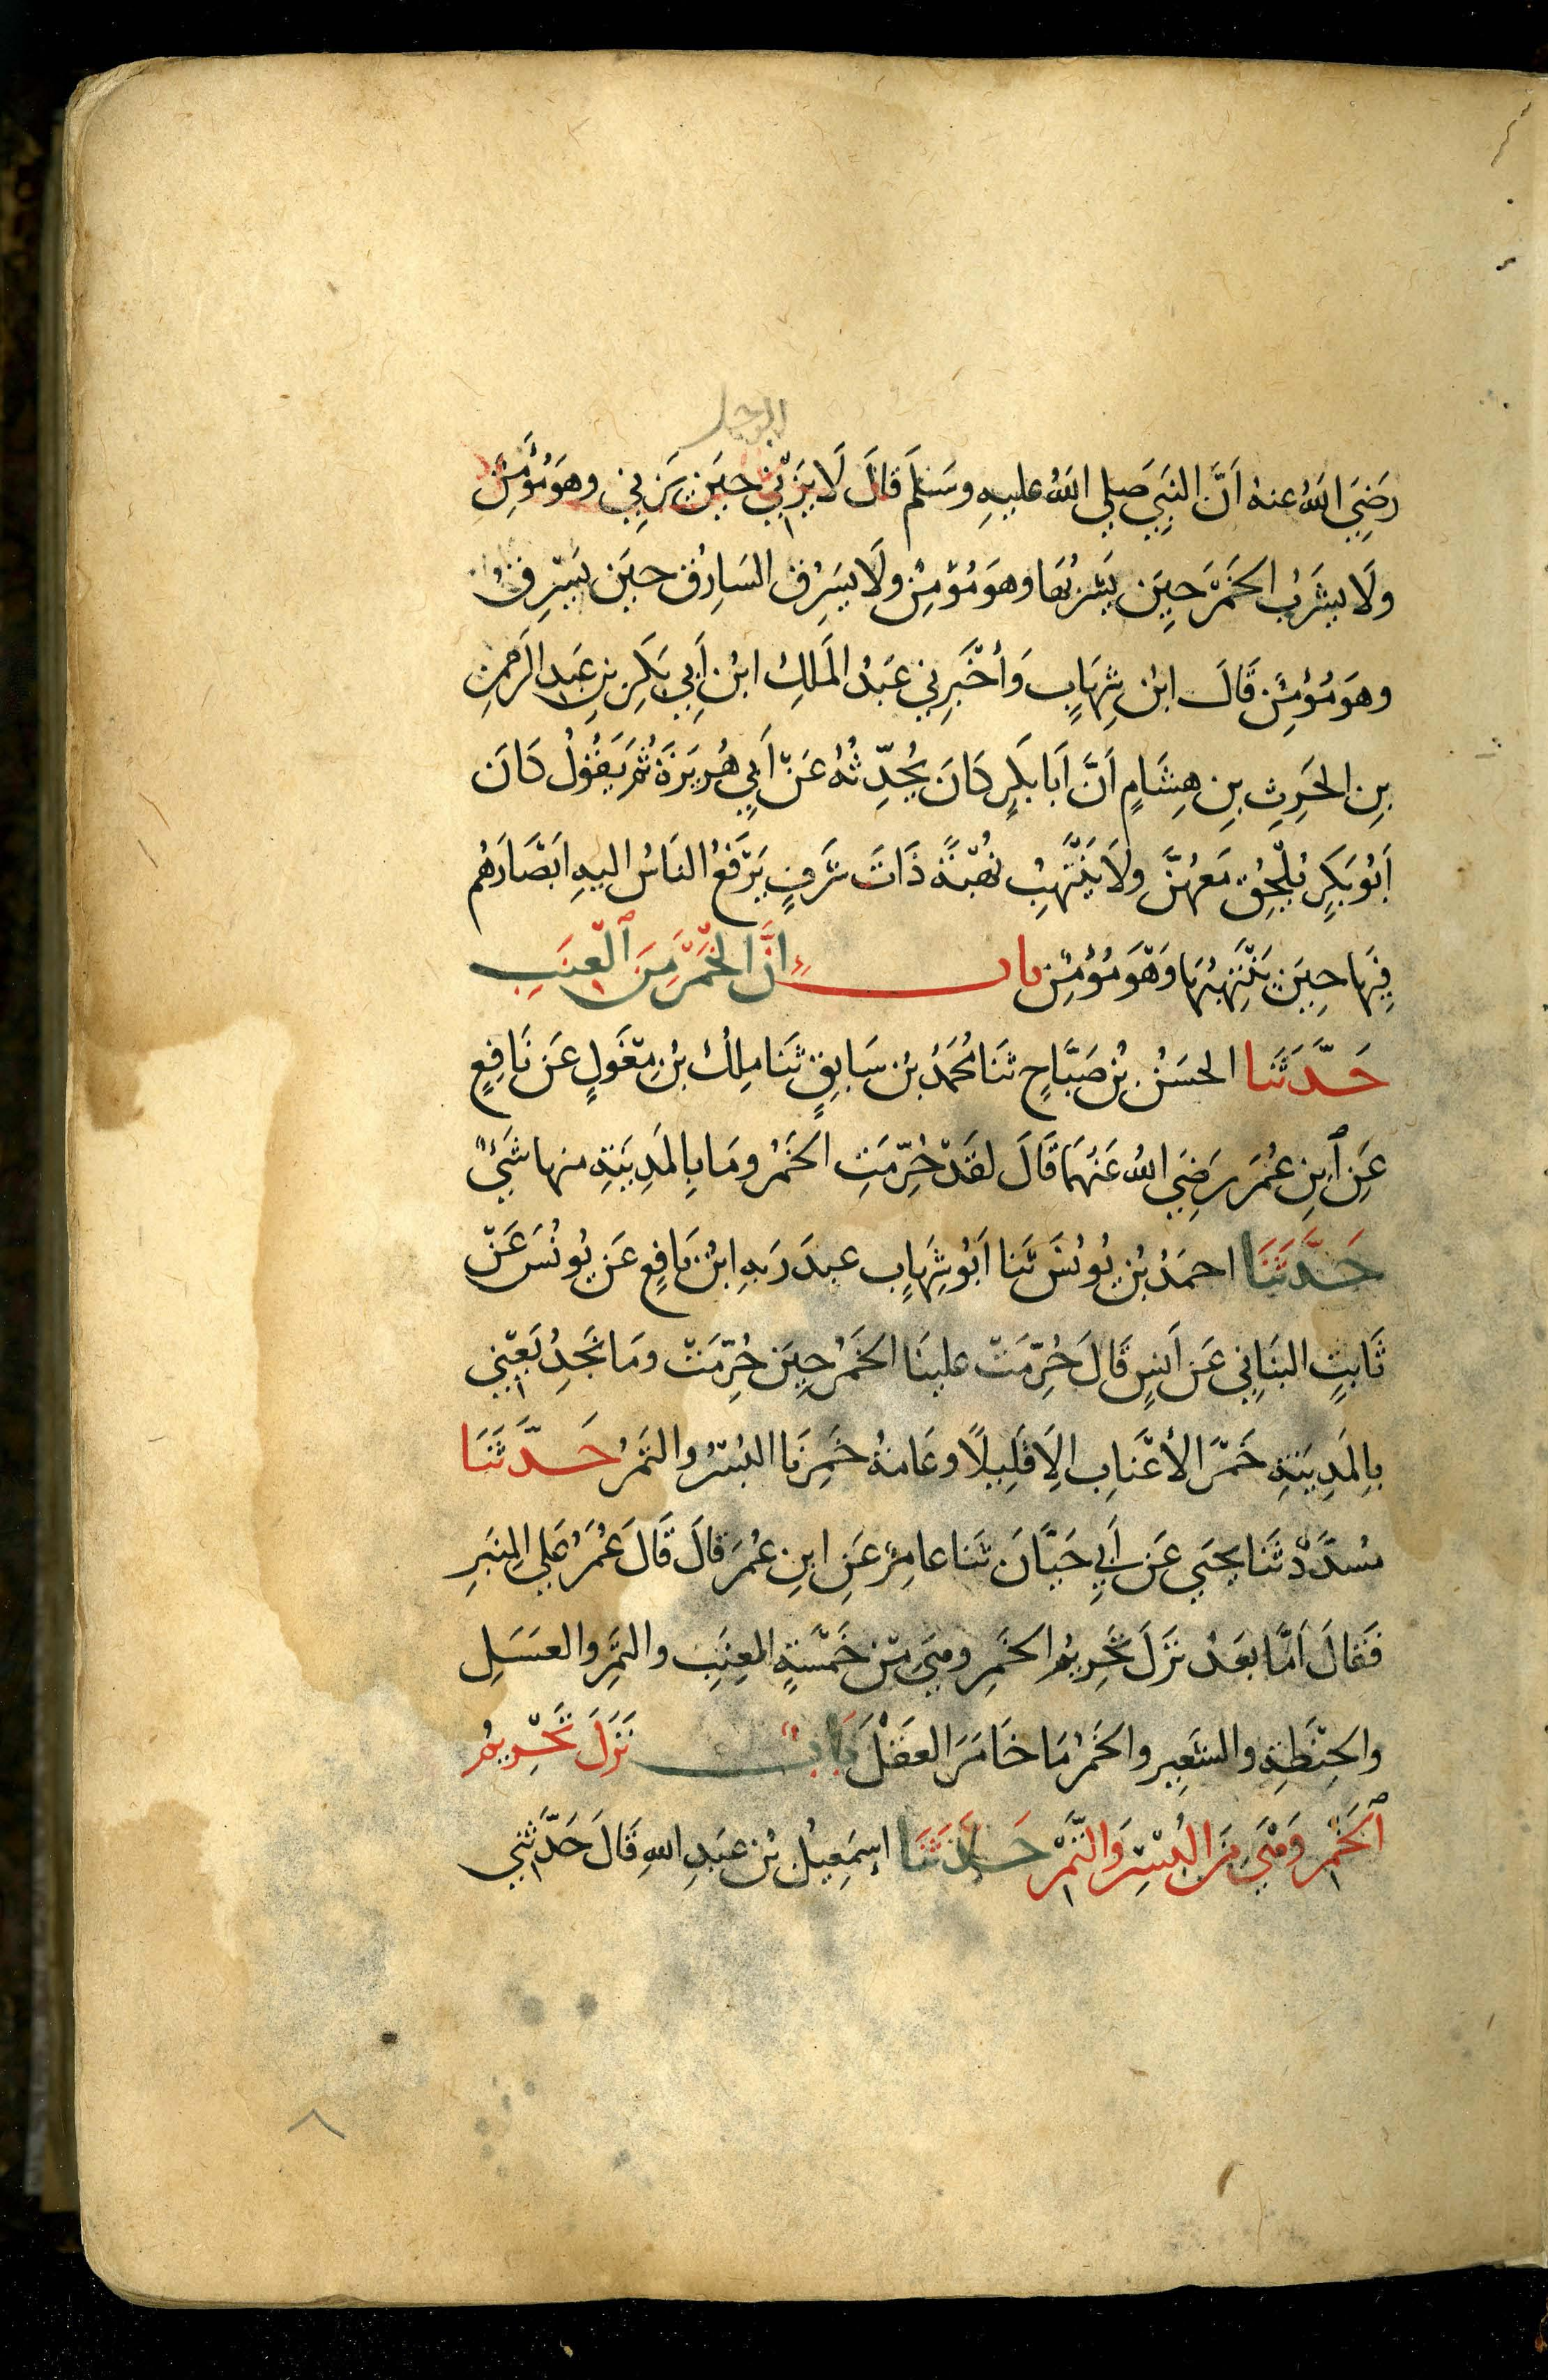 الرجل
رَضِيَ اللهُ عنهُ اَنَّ النَبِيَ صَلي اللهُ عليهِ وسَلَمَ قَالَ لَا يَزْنِي حِيَن يَزنِي وهوَ مُؤمِنٌ
ولَا يشرَبُ الخَمْرَ حِيَن يَشرَبُهَا وهوَ مُؤمِنٌ ولَا يسَرِقُ السَارِقُ حيَن يَسْرِقُ
وهوَ مُؤمنٌ قَالَ ابنُ شِهَابٍ وَأخْبَرِني عَبْدُ المَلِكِ ابنُ أبِي بَكرِ بنِ عَبدِ الرَحمنِ
بنِ الحرِثِ بنِ هِشَامٍ اَنَّ اَبَا بَكرٍ كَانَ يُحَدِّثهُ عَنْ اَبِي هُريرَةَ ثُمَ يَقُولُ كَانَ
اَبُو بَكرٍ يُلْحِقُ مَعهُنَّ ولَا يَنْتَهِبُ نُهْبَةً ذَاتَ شَرَفٍ يَرْفَعُ النَاسُ اليهِ ابْصَارَهُم
فِيَها حِيَن يَنْتَهِبُهَا وَهْوَ مُؤمِنٌ باب اِنَّ الخَمْرَ مِنَ ٱلْعِنَبِ
حَدَّثَنا الحسَنُ بنُ صَبَّاحٍ ثنَا مُحَمَدُ بنُ سَابقٍ ثَنَا ملِكُ بنُ مِغْوَلٍ عَن نَافِعٍ
عَنِ ٱبنِ عُمَرَ رَضِيَ اللهُ عَنْهُمَا قَالَ لقَدْ حُرِّمَتِ الخَمْرُ ومَا بِالمَدِينَةِ منها شَيءٌ
حَدَّثَنَا احمَدُ بنُ يُونُسَ ثَنا اَبُو شِهَابٍ عبدَ رَبهِ ابنُ نَافِعٍ عَن يُونُسَ عَنْ
ثَابتٍ البنَانِي عَن اَنسٍ قَالَ حُرِّمَتْ علينَا الخَمْرُ حِيَن حُرِّمَتْ ومَا نَجِدُ يَعْنِي
بِالمَدِينَةِ خَمْرَ الأعْنَابِ الِا قَلِيلًا وعَامةُ خَمرِنَا البُسْرُ والتَمرُ حَدَّثَنَا
مسُدَّدٌ ثَنَا يحيَي عَن اَبِي حَيَّانَ ثَنا عامِرٌ عَنِ ابنِ عُمَرَ قَالَ قَالَ عُمَرُ عَلي المِنبَرِ
فَقَالَ اَمَّا بَعدُ نزَلَ تَحرِيمُ الخَمرِ وهيَ مِن خَمْسَةٍ العِنَبِ والتَمْرِ والعسَلِ
والحِنْطَةِ والشَعِيرِ والخَمْرُ مَا خَامَرَ العقْلَ بَابٌ نَزَلَ تَحْرِيمُ
ٱلخَمْرِ وَهْيَ مِنَ البُسْرِ وَالتَّمْرِ حَدَّثَنَا اِسمَعِيلُ بنُ عبَدِ اللهِ قَالَ حَدَّثَنِي
٨